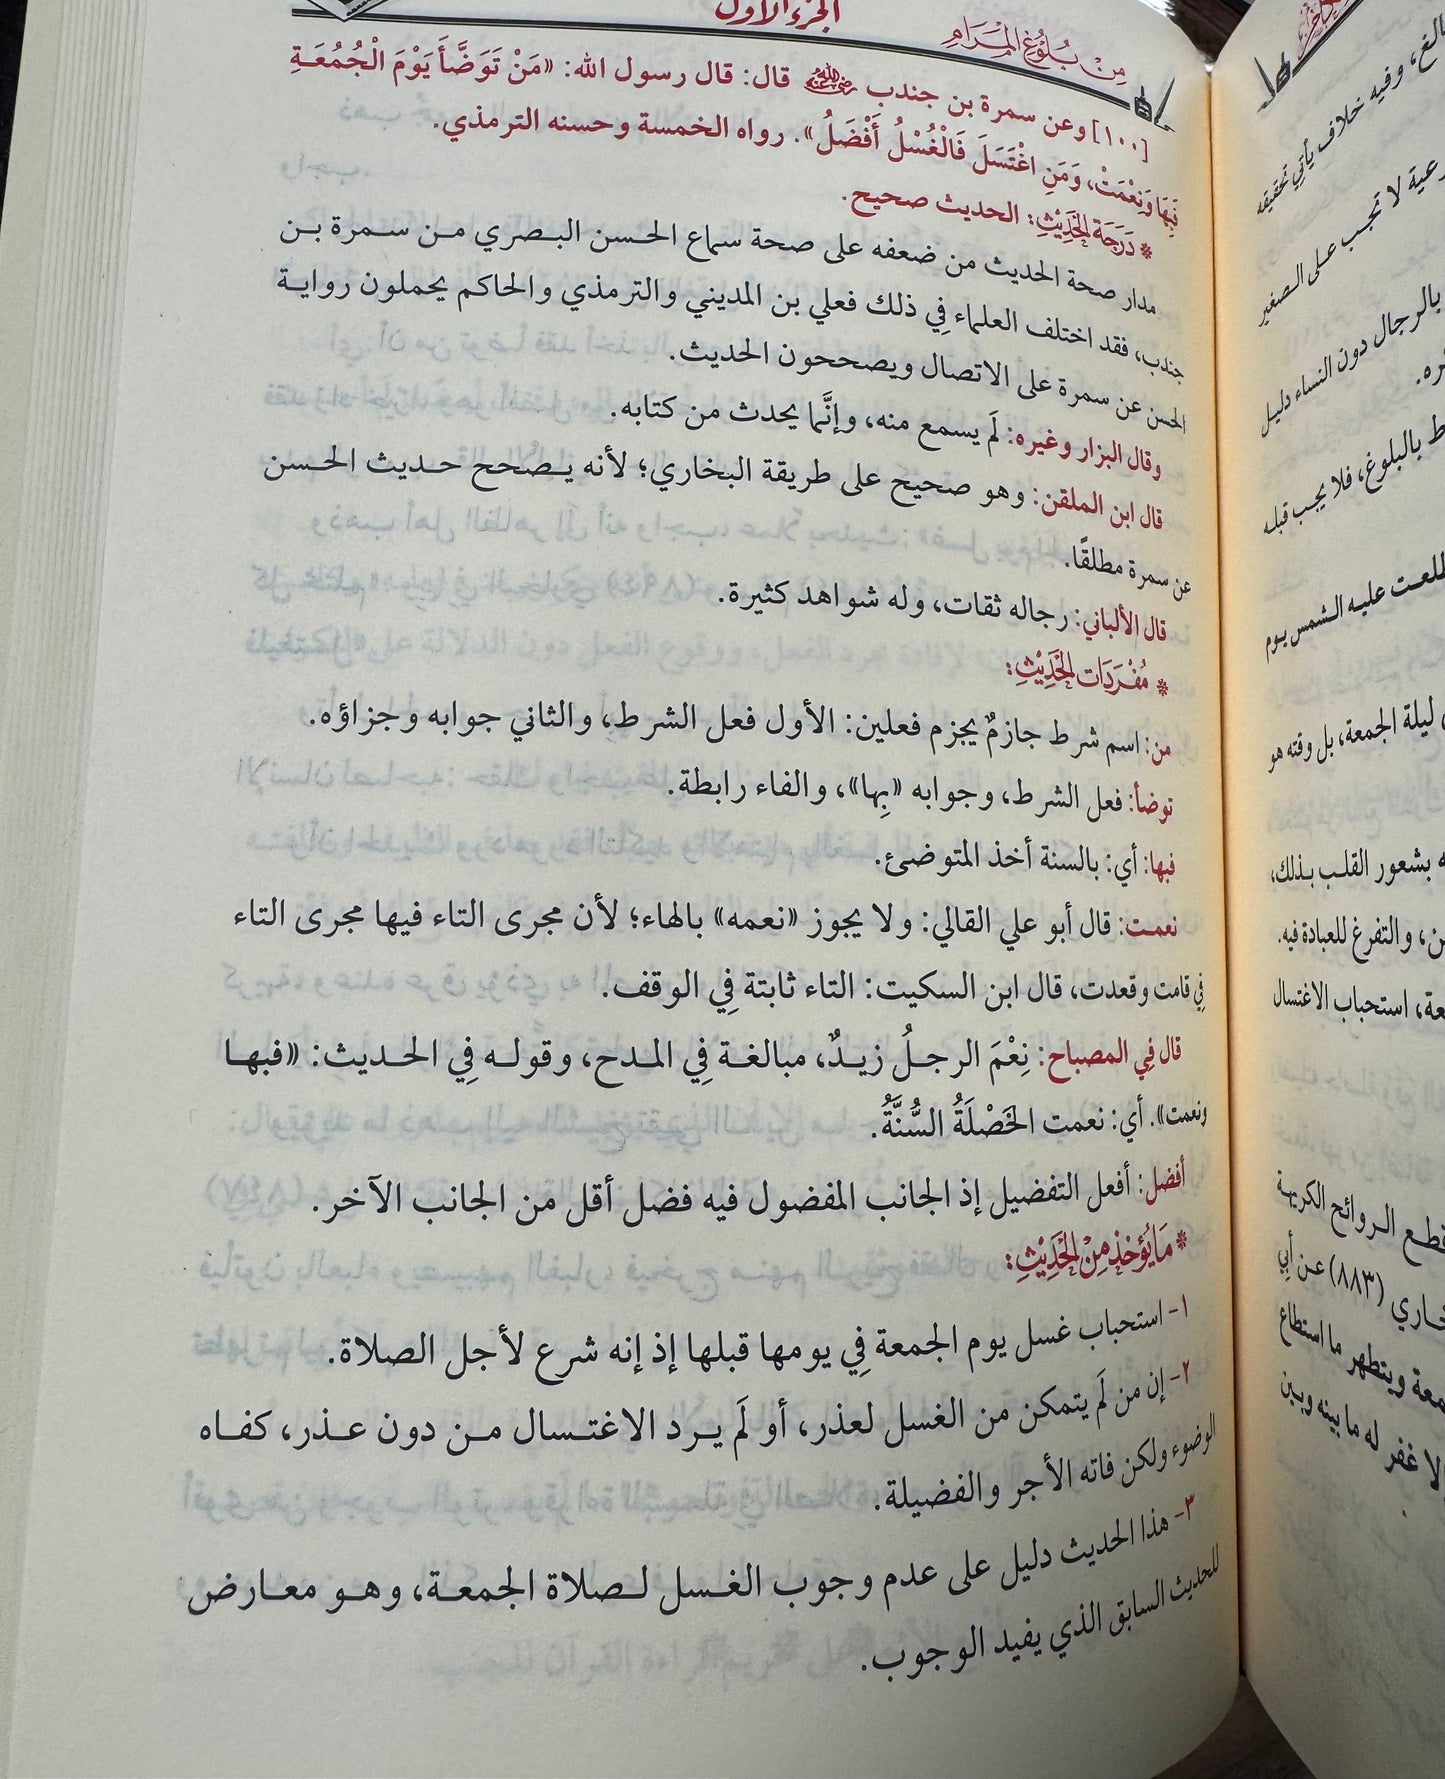 من بلوغ المرام
الجزء الأول
[١٠٠] وعن سمرة بن جندب رضي الله عنه قال: قال رسول الله: «مَنْ تَوَضَّأَ يَوْمَ الْجُمُعَةِ
فَبِهَا وَنِعْمَتْ، وَمَنِ اغْتَسَلَ فَالْغُسْلُ أَفْضَلُ». رواه الخمسة وحسنه الترمذي.
* دَرَجَة الحَدِيْثِ: الحديث صحيح.
مدار صحة الحديث من ضعفه على صحة سماع الحسن البصري من سمرة بن
جندب، فقد اختلف العلماء فِي ذلك فعلي بن المديني والترمذي والحاكم يحملون رواية
الحسن عن سمرة على الاتصال ويصححون الحديث.
وقال البزار وغيره: لَم يسمع منه، وإنَّما يحدث من كتابه.
قال ابن الملقن: وهو صحيح على طريقة البخاري؛ لأنه يصحح حديث الحسن
عن سمرة مطلقًا.
قال الألباني: رجاله ثقات، وله شواهد كثيرة.
* مُفْرَدَات الحَدِيْثِ:
من: اسم شرط جازمٌ يجزم فعلين: الأول فعل الشرط، والثاني جوابه وجزاؤه.
توضأ: فعل الشرط، وجوابه «بِها»، والفاء رابطة.
فبها: أي: بالسنة أخذ المتوضئ.
نعمت: قال أبو علي القالي: ولا يجوز «نعمه» بالهاء؛ لأن مجرى التاء فيها مجرى التاء
فِي قامت وقعدت، قال ابن السكيت: التاء ثابتة فِي الوقف.
قال فِي المصباح: نِعْمَ الرجلُ زيدٌ، مبالغة فِي المدح، وقوله فِي الحديث: «فبها
ونعمت». أي: نعمت الخَصْلَةُ السُّنَّةُ.
أفضل: أفعل التفضيل إذ الجانب المفضول فيه فضل أقل من الجانب الآخر.
* مَا يُؤخذ مِنْ الحَدِيْثِ:
١- استحباب غسل يوم الجمعة فِي يومها قبلها إذ إنه شرع لأجل الصلاة.
٢- إن من لَم يتمكن من الغسل لعذر، أو لَم يرد الاغتسال من دون عذر، كفاه
الوضوء ولكن فاته الأجر والفضيلة.
٣- هذا الحديث دليل على عدم وجوب الغسل لصلاة الجمعة، وهو معارض
للحديث السابق الذي يفيد الوجوب.
وفيه خلاف يأتِي تحقيقه
لا تجب على الصغير
بالرجال دون النساء دليل
بالبلوغ، فلا يجب قبله
عليه الشمس يوم
ليلة الجمعة، بل وقته هو
بشعور القلب بذلك،
والتفرغ للعبادة فيه.
استحباب الاغتسال
الروائح الكريهة
(٨٨٣) عن أبِي
ويتطهر ما استطاع
إلا غفر له ما بينه وبين